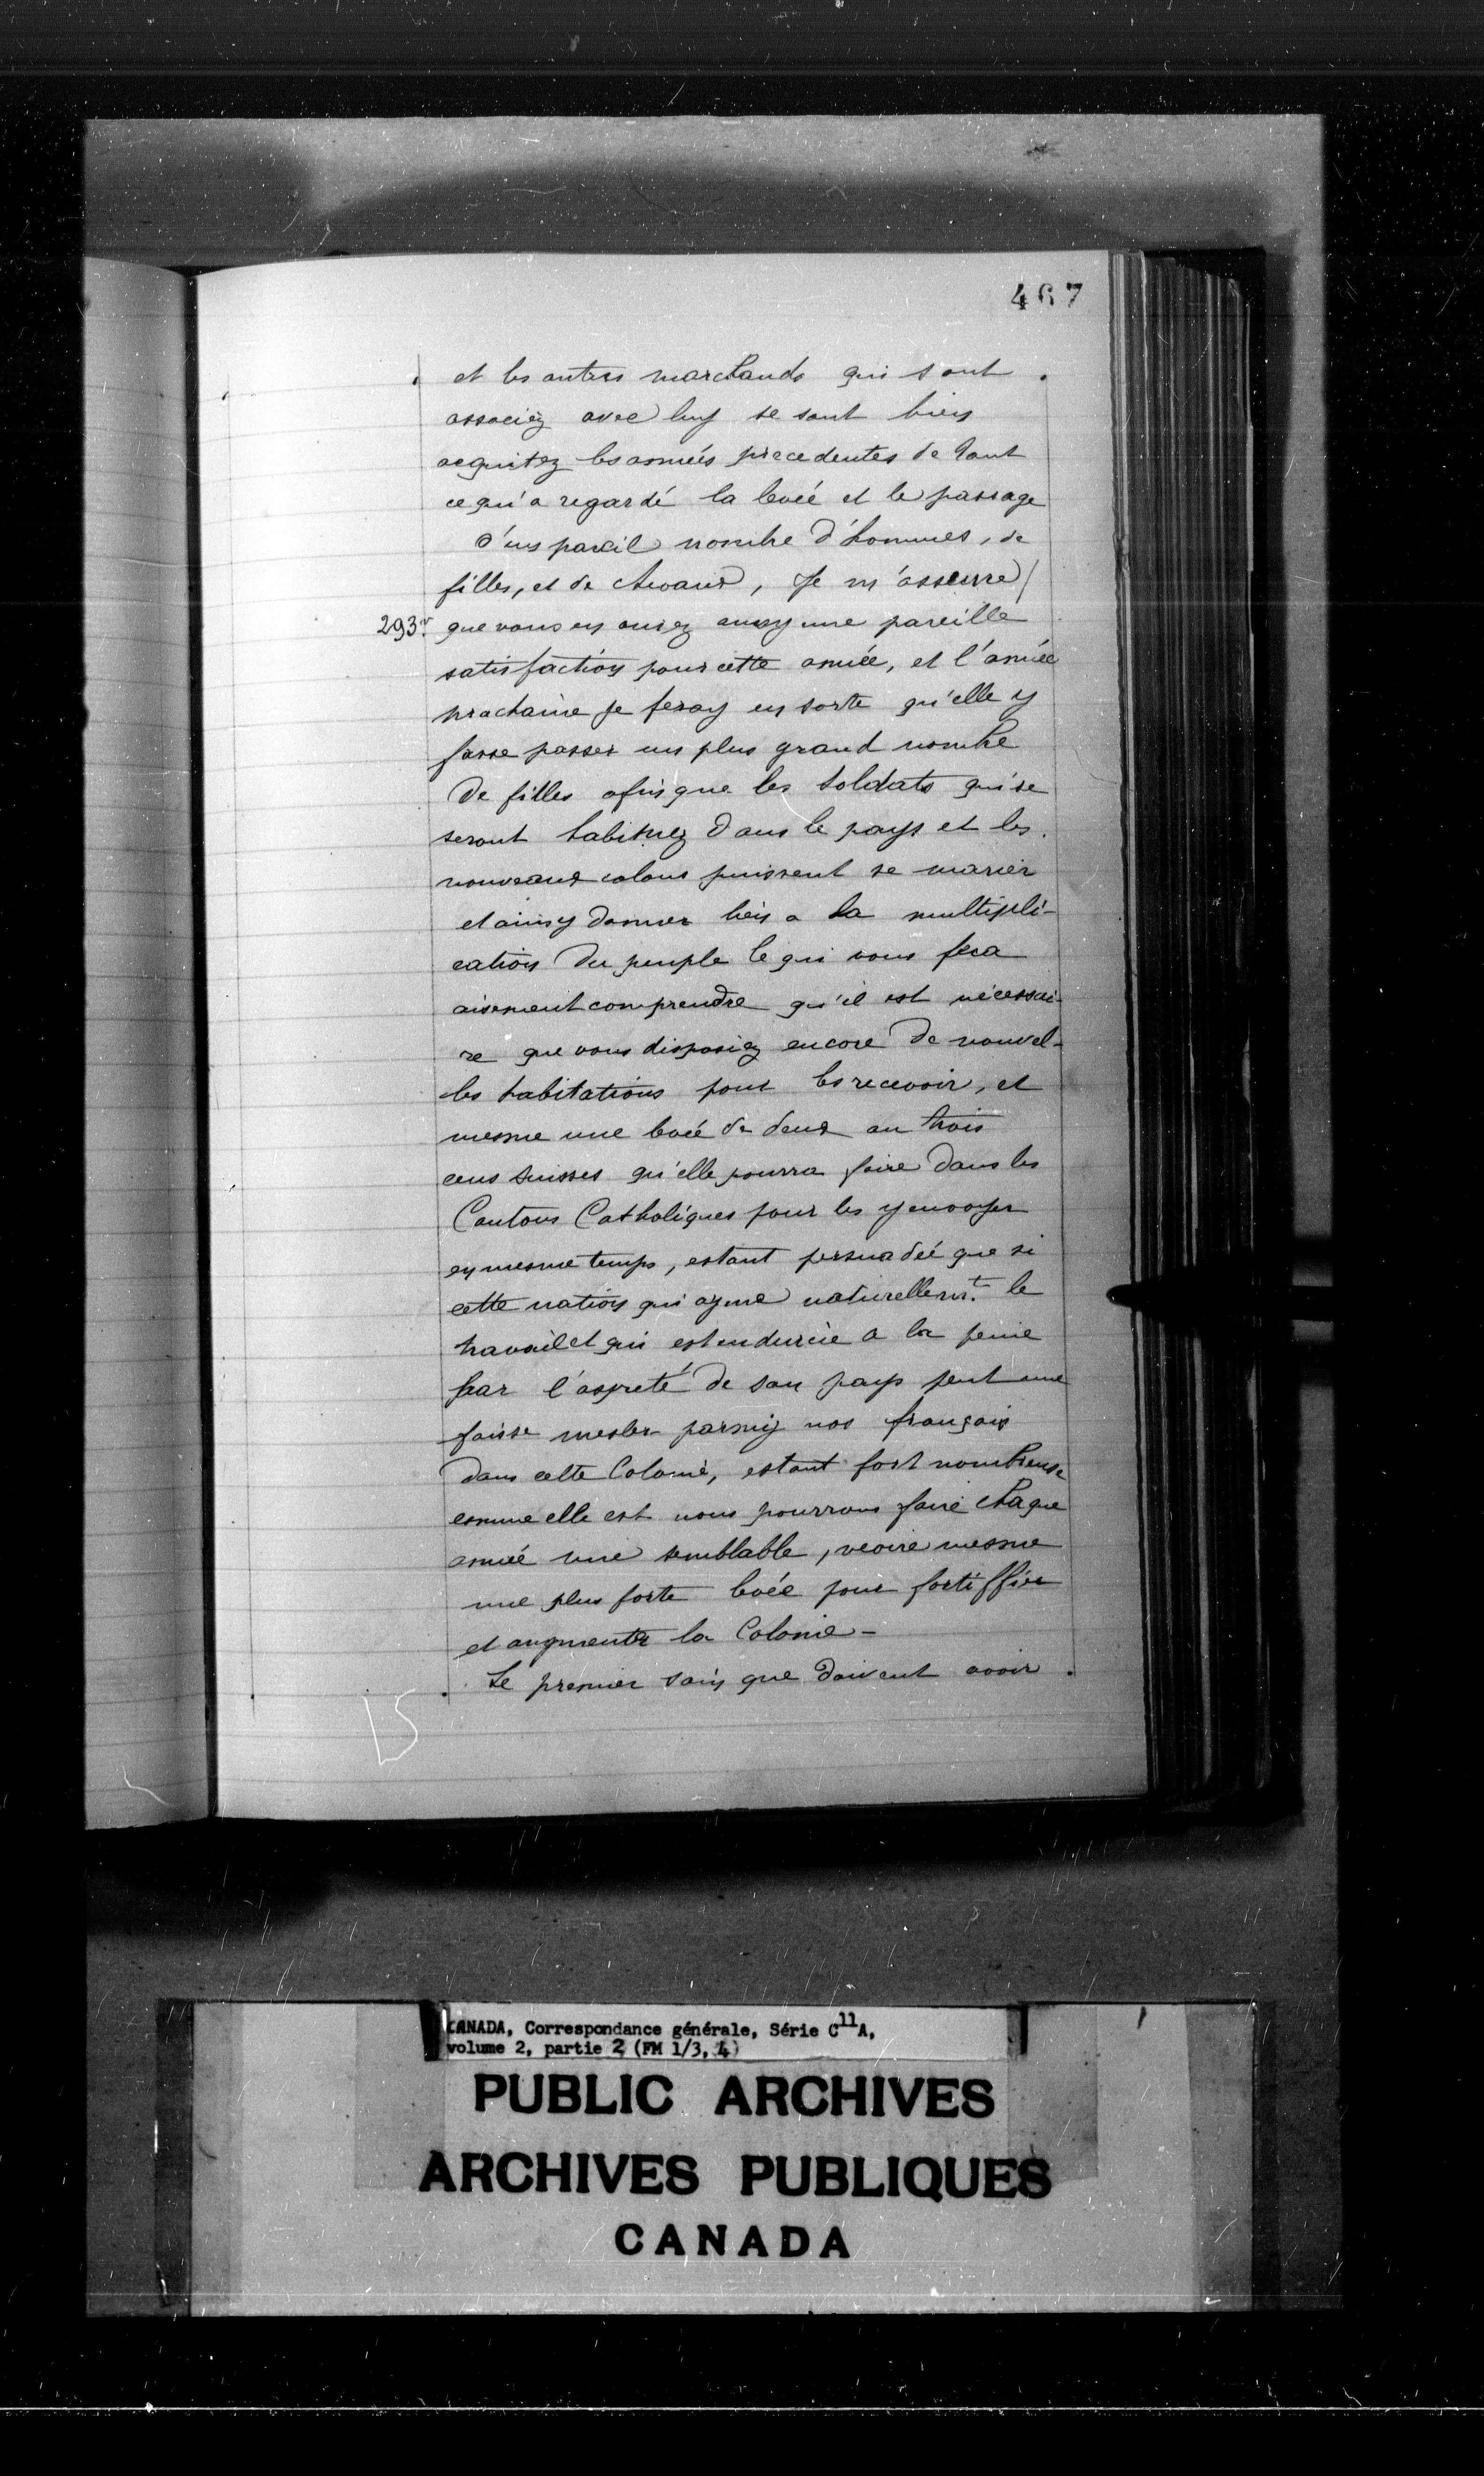 467
et les autres marchands qui sont
associéz avec luy se sont bien
acquitez les années precedentes de tout
ce qu'a regardé la levée et le passage
d'un pareil nombre d'hommes, de
filles, et de chevaux, Je m'asseure/
293v. que vous en aurez aussy une pareille
satisfaction pour cette année, et l'année
prochaine je feray en sorte qu'elle y
fasse passer un plus grand nombre
de filles afin que les soldats qui se
seront habituez dans le pays et les
nouveaux colons puissent se marier
et ainsy donner lieu a la multipli-
cation du peuple ce qui vous fera
aisement comprendre qu'il est nécessai-
re que vous disposiez encore de nouvel-
les habitations pour les recevoir, et
mesme une levée de deux ou trois
cens suisses qu'elle pourra faire dans les
Cantons Catholiques pour les y envoyer
en mesme temps, estant persuadée que si
cette nation qui ayme naturellem.t le
travail et qui est endurcie a la peine
par l'aspreté de son pays peut une
fois se mesler parmy nos françois
dans cette Colonie, estant fort nombreuse
comme elle est nous pourrons faire chaque
année une semblable, veoire mesme
une plus forte levée pour fortiffier
et augmenter la Colonie -
Le premier soin que doivent avoir
CANADA, Correspondance générale, Série C11A,
volume 2, partie 2 (FM 1/3, 4)
PUBLIC ARCHIVES
ARCHIVES PUBLIQUES
CANADA